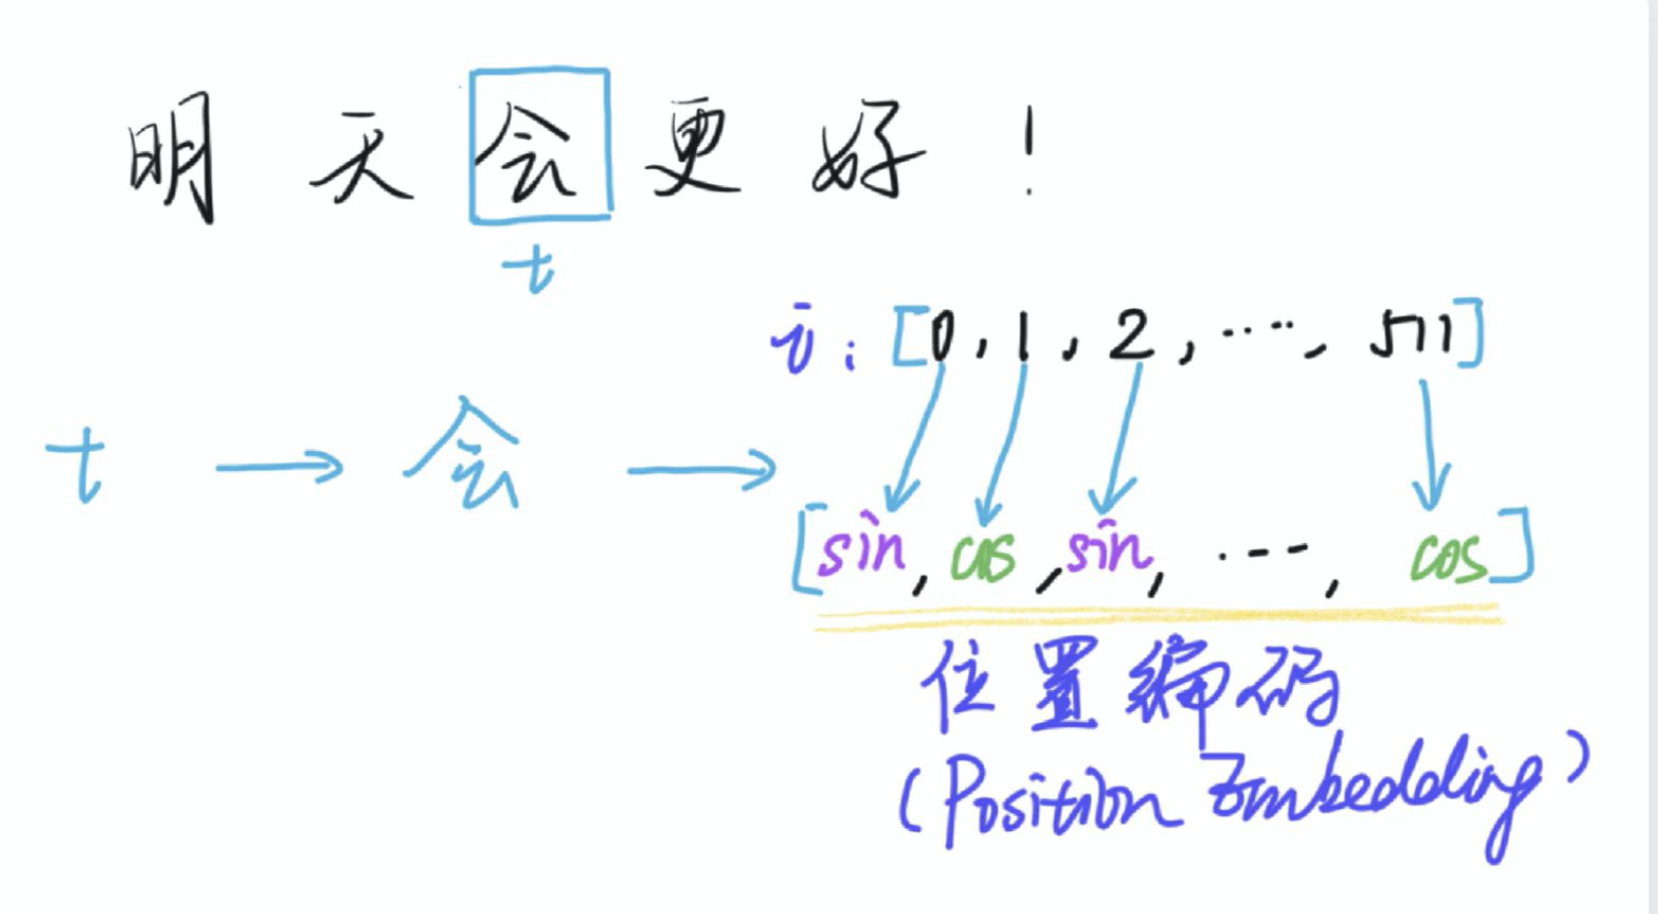 明天会更好!
t
i: [0, 1, 2, ....., 511]
t → 会 →
[sin, cos, sin, ..., cos]
位置编码
(Position Embedding)